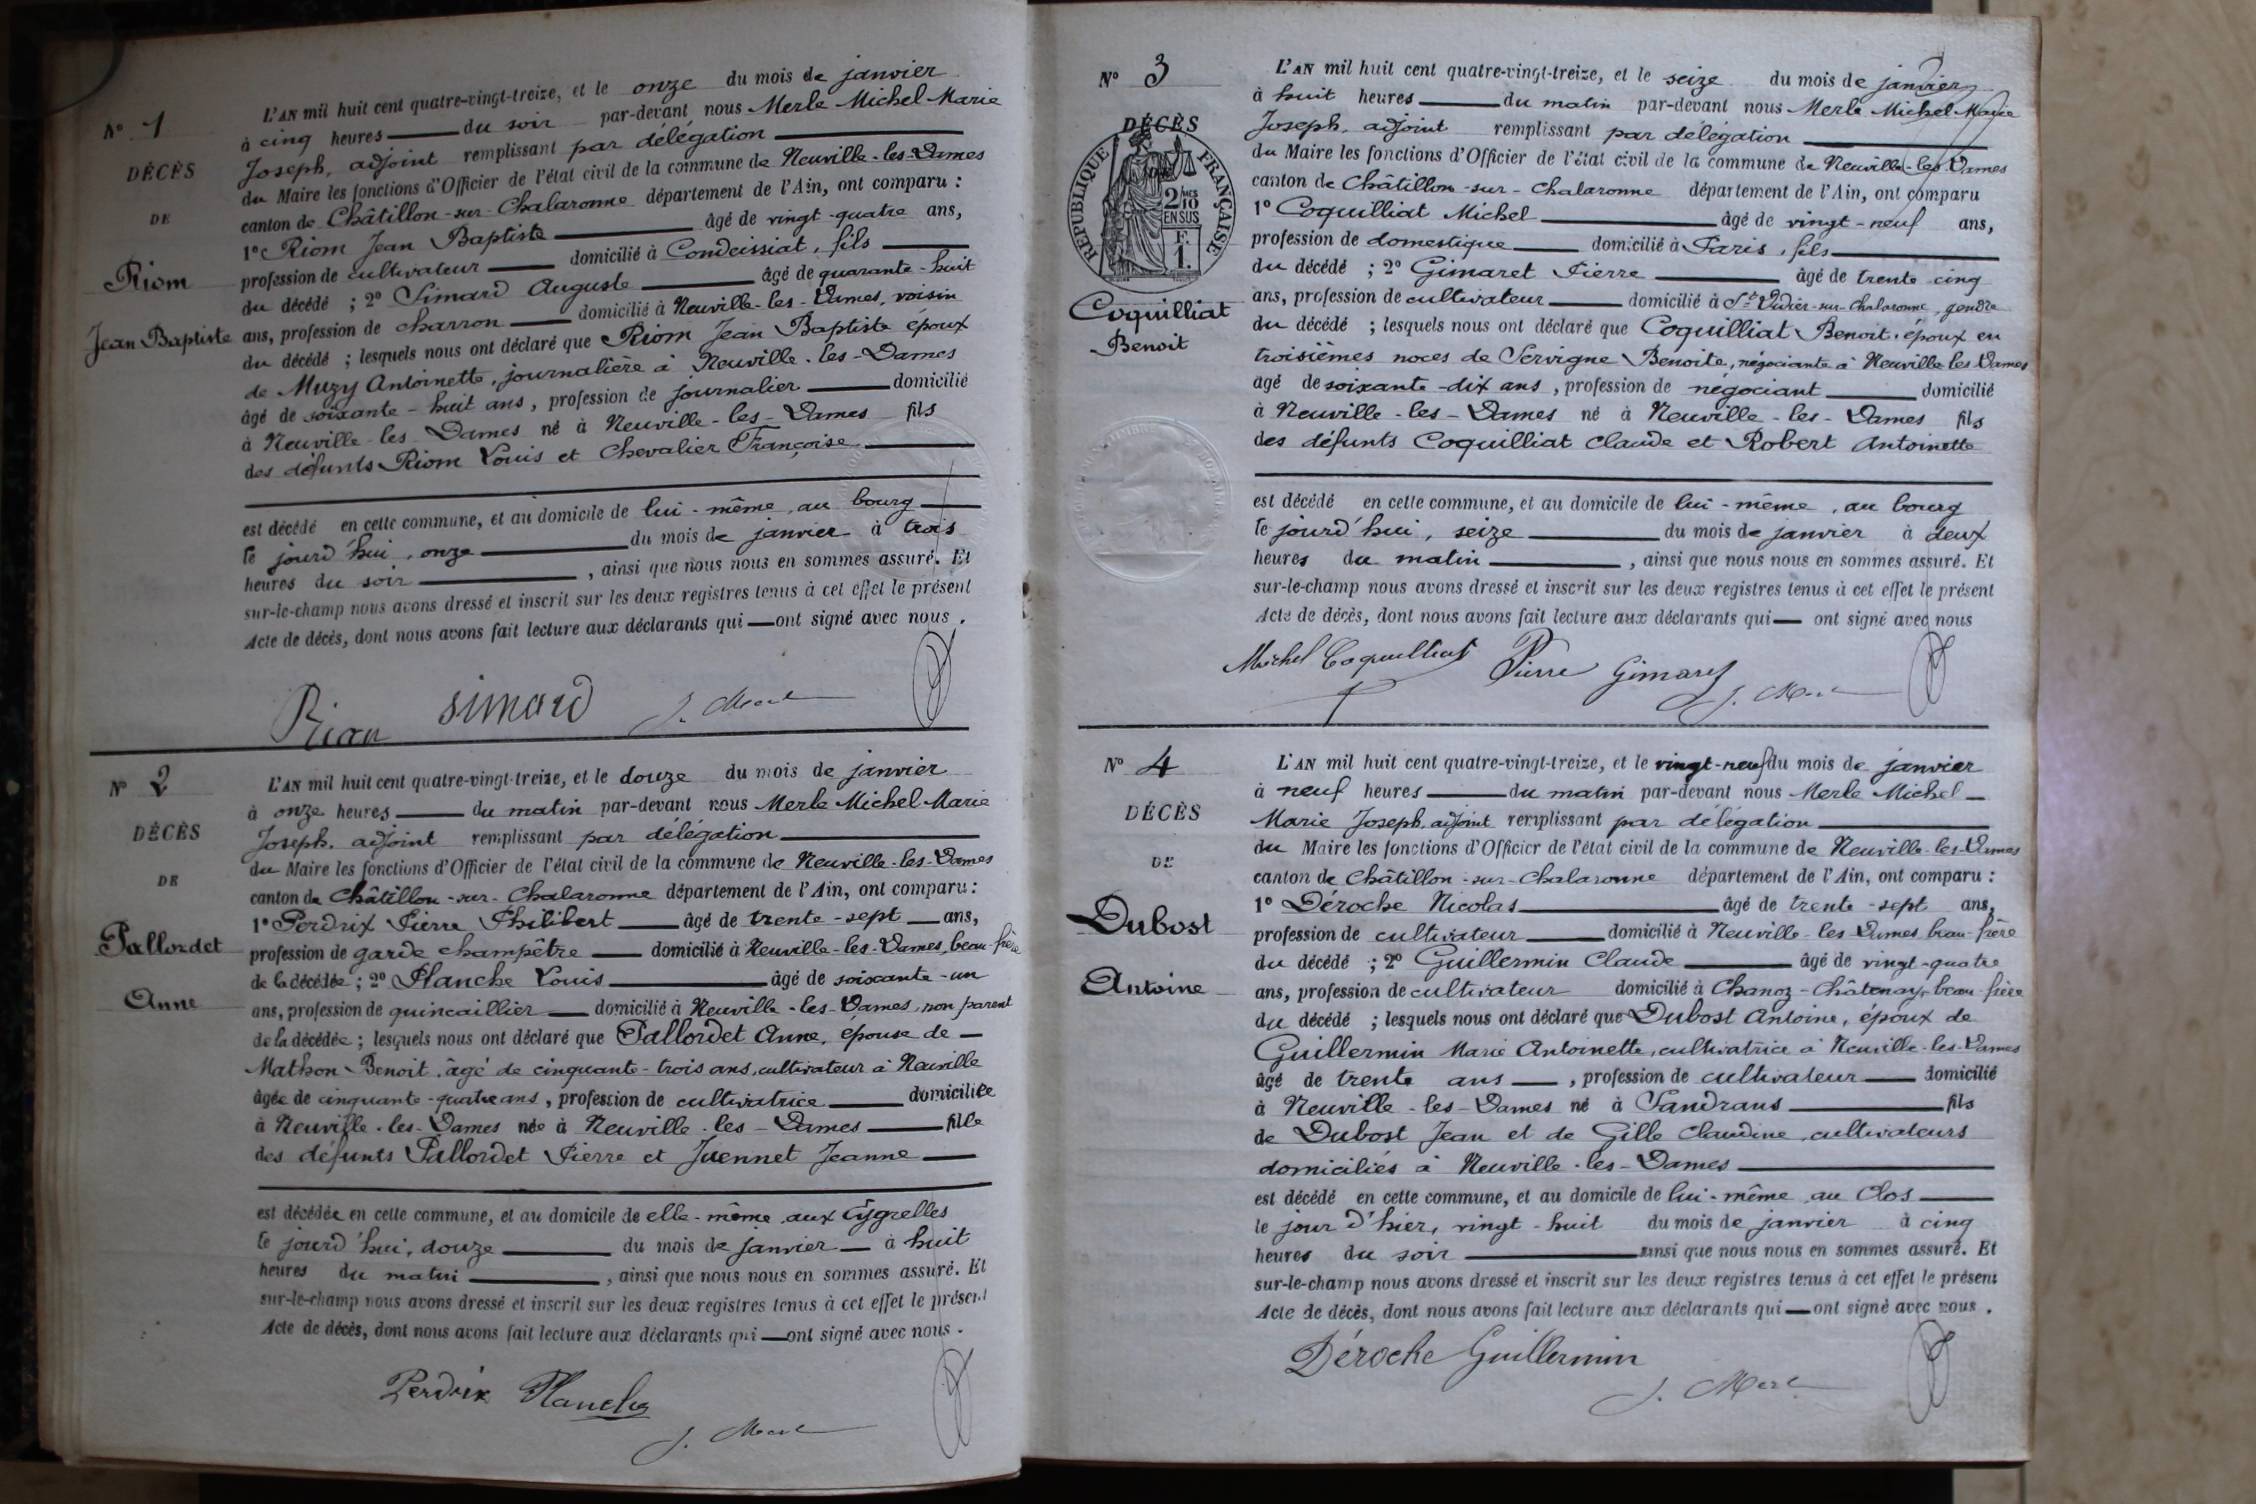 N° 1
DÉCÈS
DE
Riom
Jean Baptiste
L'AN mil huit cent quatre-vingt-treize, et le onze du mois de janvier
à cinq heures du soir par-devant nous Merle Michel Marie
Joseph, adjoint remplissant par délégation
du Maire les fonctions d'Officier de l'état civil de la commune de Neuville-les-Dames
canton de Châtillon-sur-Chalaronne département de l'Ain, ont comparu :
1° Riom Jean Baptiste âgé de vingt-quatre ans,
profession de cultivateur domicilié à Condeissiat, fils
du décédé ; 2° Simard Auguste âgé de quarante-huit
ans, profession de charron domicilié à Neuville-les-Dames, voisin
du décédé ; lesquels nous ont déclaré que Riom Jean Baptiste époux
de Muzy Antoinette, journalière à Neuville-les-Dames
âgé de soixante-huit ans, profession de journalier domicilié
à Neuville-les-Dames né à Neuville-les-Dames fils
des défunts Riom Louis et Chevalier Françoise
est décédé en cette commune, et au domicile de lui-même, au bourg
le jourd'hui, onze du mois de janvier à trois
heures du soir , ainsi que nous nous en sommes assuré. Et
sur-le-champ nous avons dressé et inscrit sur les deux registres tenus à cet effet le présent
Acte de décès, dont nous avons fait lecture aux déclarants qui ont signé avec nous.
Riom Simard J. Merle
N° 2
DÉCÈS
DE
Pallordet
Anne
L'AN mil huit cent quatre-vingt-treize, et le douze du mois de janvier
à onze heures du matin par-devant nous Merle Michel Marie
Joseph, adjoint remplissant par délégation
du Maire les fonctions d'Officier de l'état civil de la commune de Neuville-les-Dames
canton de Châtillon-sur-Chalaronne département de l'Ain, ont comparu :
1° Perdrix Pierre Philibert âgé de trente-sept ans,
profession de garde champêtre domicilié à Neuville-les-Dames, beau-frère
de la décédée ; 2° Planche Louis âgé de soixante-un
ans, profession de quincaillier domicilié à Neuville-les-Dames, non parent
de la décédée ; lesquels nous ont déclaré que Pallordet Anne, épouse de
Mathon Benoit, âgé de cinquante-trois ans, cultivateur à Neuville
âgée de cinquante-quatre ans, profession de cultivatrice domiciliée
à Neuville-les-Dames née à Neuville-les-Dames fille
des défunts Pallordet Pierre et Juennet Jeanne
est décédée en cette commune, et au domicile de elle-même, aux
le jourd'hui, douze du mois de janvier à huit
heures du matin , ainsi que nous nous en sommes assuré. Et
sur-le-champ nous avons dressé et inscrit sur les deux registres tenus à cet effet le présent
Acte de décès, dont nous avons fait lecture aux déclarants qui ont signé avec nous.
Perdrix Planche
J. Merle
N° 3
DÉCÈS
RÉPUBLIQUE FRANÇAISE
2 MES
10
EN SUS
F.
1.
Coquilliat
Benoit
L'AN mil huit cent quatre-vingt-treize, et le seize du mois de janvier
à huit heures du matin par-devant nous Merle Michel Marie
Joseph, adjoint remplissant par délégation
du Maire les fonctions d'Officier de l'état civil de la commune de Neuville-les-Dames
canton de Châtillon-sur-Chalaronne département de l'Ain, ont comparu
1° Coquilliat Michel âgé de vingt-neuf ans,
profession de domestique domicilié à Paris, fils
du décédé ; 2° Gimaret Pierre âgé de trente cinq
ans, profession de cultivateur domicilié à St Didier-sur-Chalaronne, gendre
du décédé ; lesquels nous ont déclaré que Coquilliat Benoit, époux en
troisièmes noces de Servigne Benoite, négociante à Neuville les Dames
âgé de soixante-dix ans, profession de négociant domicilié
à Neuville-les-Dames né à Neuville-les-Dames fils
des défunts Coquilliat Claude et Robert Antoinette
est décédé en cette commune, et au domicile de lui-même, au bourg
le jourd'hui, seize du mois de janvier à deux
heures du matin , ainsi que nous nous en sommes assuré. Et
sur-le-champ nous avons dressé et inscrit sur les deux registres tenus à cet effet le présent
Acte de décès, dont nous avons fait lecture aux déclarants qui ont signé avec nous
Michel Coquilliat Pierre Gimaret
J. Merle
N° 4
DÉCÈS
DE
Dubost
Antoine
L'AN mil huit cent quatre-vingt-treize, et le vingt-neuf du mois de janvier
à neuf heures du matin par-devant nous Merle Michel
Marie Joseph, adjoint remplissant par délégation
du Maire les fonctions d'Officier de l'état civil de la commune de Neuville-les-Dames
canton de Châtillon-sur-Chalaronne département de l'Ain, ont comparu :
1° Déroche Nicolas âgé de trente-sept ans,
profession de cultivateur domicilié à Neuville-les-Dames beau-frère
du décédé ; 2° Guillermin Claude âgé de vingt-quatre
ans, profession de cultivateur domicilié à Chanoz-Châtenay, beau-frère
du décédé ; lesquels nous ont déclaré que Dubost Antoine, époux de
Guillermin Marie Antoinette, cultivatrice à Neuville-les-Dames
âgé de trente ans , profession de cultivateur domicilié
à Neuville-les-Dames né à Sandrans fils
de Dubost Jean et de Gille Claudine, cultivateurs
domiciliés à Neuville-les-Dames
est décédé en cette commune, et au domicile de lui-même, au Clos
le jour d'hier, vingt-huit du mois de janvier à cinq
heures du soir ainsi que nous nous en sommes assuré. Et
sur-le-champ nous avons dressé et inscrit sur les deux registres tenus à cet effet le présent
Acte de décès, dont nous avons fait lecture aux déclarants qui ont signé avec nous.
Déroche Guillermin
J. Merle